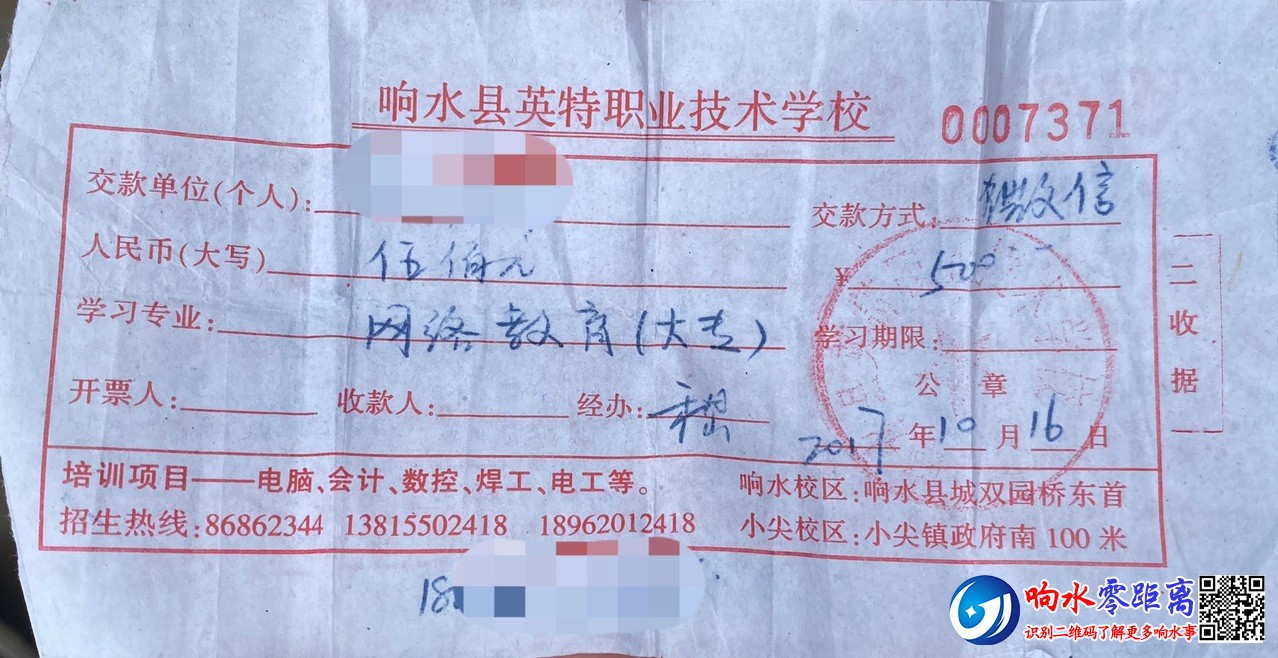 响水县英特职业技术学校
0007371
交款单位(个人):
交款方式: 微信
人民币(大写) 伍佰元
¥ 500
学习专业: 网络教育(大专)
学习期限:
公章
开票人: 收款人: 经办:
2017年10月16日
二收据
培训项目——电脑、会计、数控、焊工、电工等。
响水校区:响水县城双园桥东首
招生热线:86862344 13815502418 18962012418
小尖校区:小尖镇政府南100米
18
响水零距离
识别二维码了解更多响水事